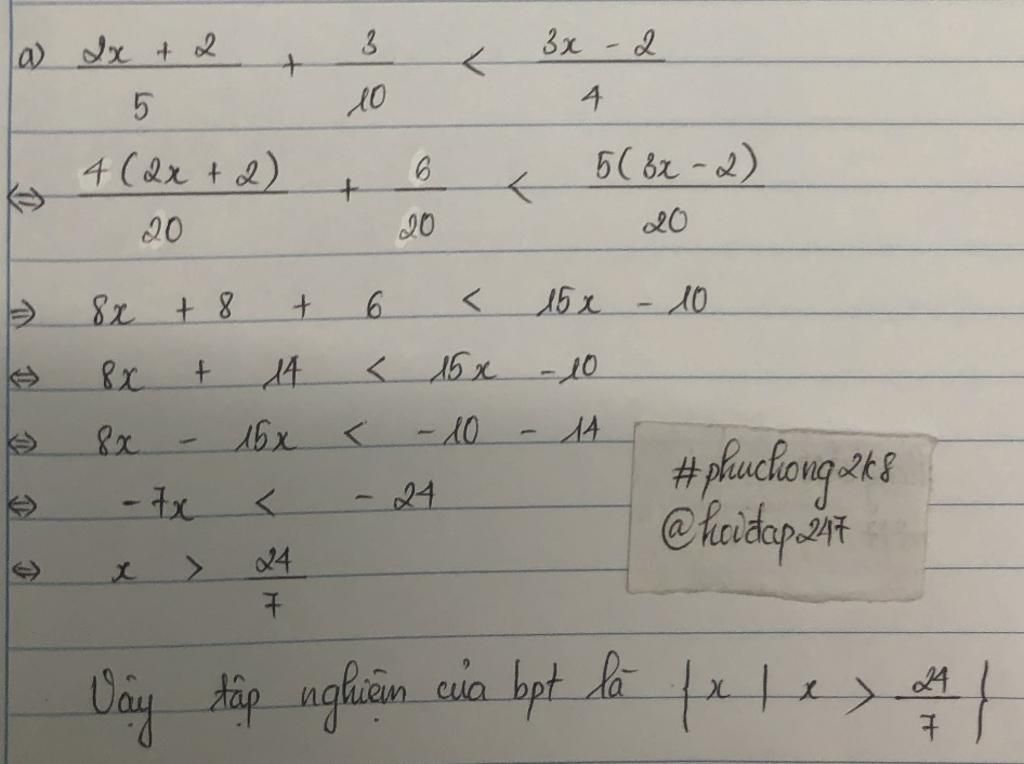 a) \frac{2x + 2}{5} + \frac{3}{10} < \frac{3x - 2}{4}
⇔ \frac{4(2x + 2)}{20} + \frac{6}{20} < \frac{5(3x - 2)}{20}
⇒ 8x + 8 + 6 < 15x - 10
⇔ 8x + 14 < 15x - 10
⇔ 8x - 15x < -10 - 14
⇔ -7x < -24
⇔ x > \frac{24}{7}
Vậy tập nghiệm của bpt là {x | x > \frac{24}{7}}
#phuchong2k8
@hoidap247